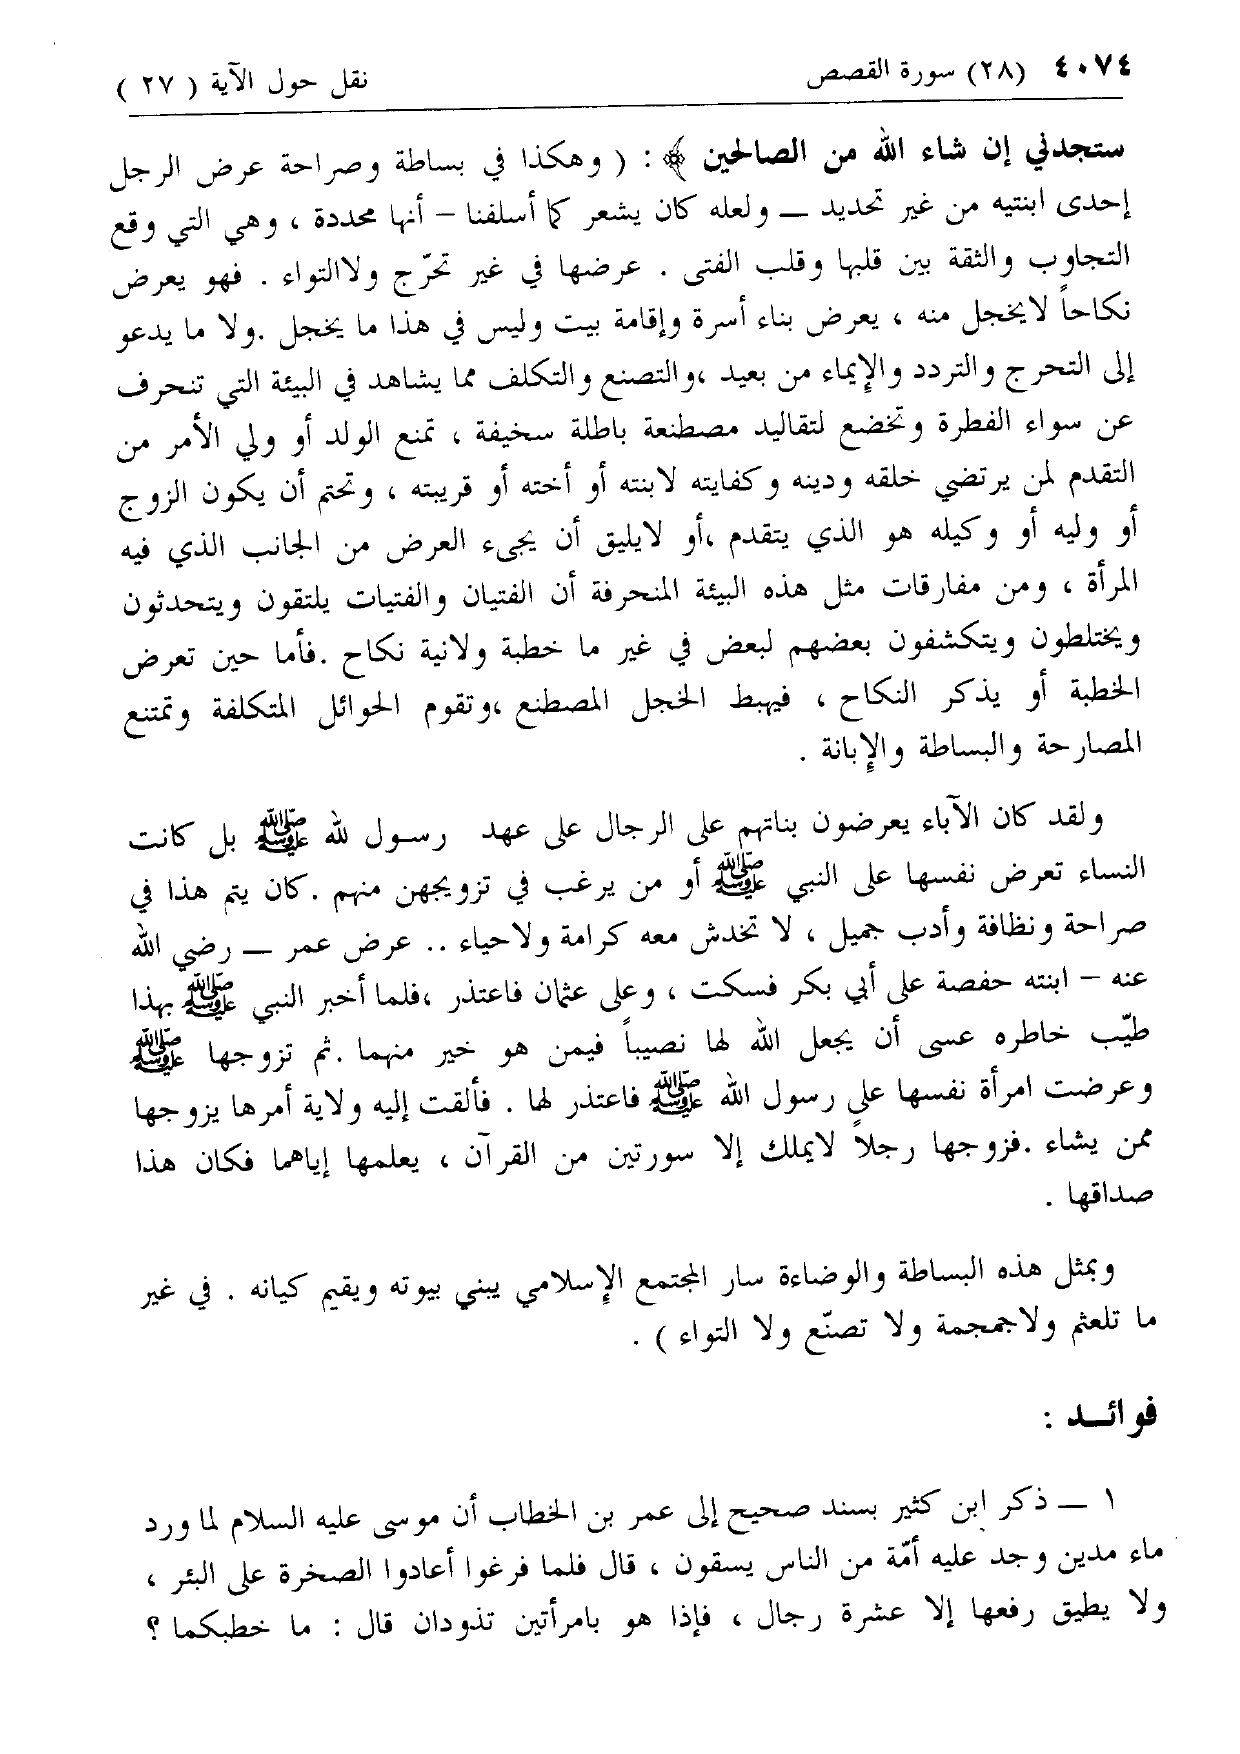 ٤٠٧٤ (٢٨) سورة القصص نقل حول الآية ( ٢٧ )
ستجدني إن شاء الله من الصالحين ﴾ : ( وهكذا في بساطة وصراحة عرض الرجل
إحدى ابنتيه من غير تحديد ــ ولعله كان يشعر كما أسلفنا – أنها محددة ، وهي التي وقع
التجاوب والثقة بين قلبها وقلب الفتى . عرضها في غير تحرّج ولاالتواء . فهو يعرض
نكاحاً لايخجل منه ، يعرض بناء أسرة وإقامة بيت وليس في هذا ما يخجل .ولا ما يدعو
إلى التحرج والتردد والإيماء من بعيد ،والتصنع والتكلف مما يشاهد في البيئة التي تنحرف
عن سواء الفطرة وتخضع لتقاليد مصطنعة باطلة سخيفة ، تمنع الولد أو ولي الأمر من
التقدم لمن يرتضي خلقه ودينه وكفايته لابنته أو أخته أو قريبته ، وتحتم أن يكون الزوج
أو وليه أو وكيله هو الذي يتقدم ،أو لايليق أن يجيء العرض من الجانب الذي فيه
المرأة ، ومن مفارقات مثل هذه البيئة المنحرفة أن الفتيان والفتيات يلتقون ويتحدثون
ويختلطون ويتكشفون بعضهم لبعض في غير ما خطبة ولانية نكاح .فأما حين تعرض
الخطبة أو يذكر النكاح ، فيهبط الخجل المصطنع ،وتقوم الحوائل المتكلفة وتمتنع
المصارحة والبساطة والإبانة .
ولقد كان الآباء يعرضون بناتهم على الرجال على عهد رسول لله ﷺ بل كانت
النساء تعرض نفسها على النبي ﷺ أو من يرغب في تزويجهن منهم .كان يتم هذا في
صراحة ونظافة وأدب جميل ، لا تخدش معه كرامة ولاحياء .. عرض عمر ــ رضي الله
عنه – ابنته حفصة على أبي بكر فسكت ، وعلى عثمان فاعتذر ،فلما أخبر النبي ﷺ بهذا
طيّب خاطره عسى أن يجعل الله لها نصيباً فيمن هو خير منهما .ثم تزوجها ﷺ
وعرضت امرأة نفسها على رسول الله ﷺ فاعتذر لها . فألقت إليه ولاية أمرها يزوجها
ممن يشاء .فزوجها رجلاً لايملك إلا سورتين من القرآن ، يعلمها إياهما فكان هذا
صداقها .
وبمثل هذه البساطة والوضاءة سار المجتمع الإسلامي يبني بيوته ويقيم كيانه . في غير
ما تلعثم ولاجمجمة ولا تصنّع ولا التواء ) .
فوائـد :
١ ــ ذكر ابن كثير بسند صحيح إلى عمر بن الخطاب أن موسى عليه السلام لما ورد
ماء مدين وجد عليه أمّة من الناس يسقون ، قال فلما فرغوا أعادوا الصخرة على البئر ،
ولا يطيق رفعها إلا عشرة رجال ، فإذا هو بامرأتين تذودان قال : ما خطبكما ؟